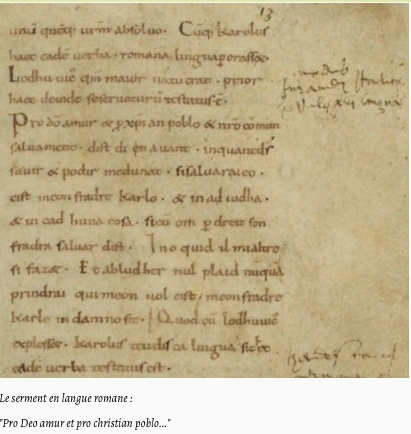 13
unū quēq; urm absoluo. Cūq; karolus
haec eadē uerba. romana lingua perorasset.
Lodhuuic qm maior natu erat. prior
haec deinde se seruaturū testatus ē.
Pro dō amur & p xpian poblo & nrō cōmun
saluament. dist di en auant. inquantds
sauir & podir medunat. sisaluaraieo.
cist meon fradre karlo. & in adiudha.
& in cad huna cosa. sicū om p dreit son
fradra saluar dist. Ino quid il mialtre
si faz&. Et abludher nul plaid nūquā
prindrai qui meon uol cist. meon fradre
karle in damno sit. Quod cū lodhuuic
explesset. karolus teudisca lingua sic hec
eadē uerba testatus est.
Le serment en langue romane :
"Pro Deo amur et pro christian poblo..."